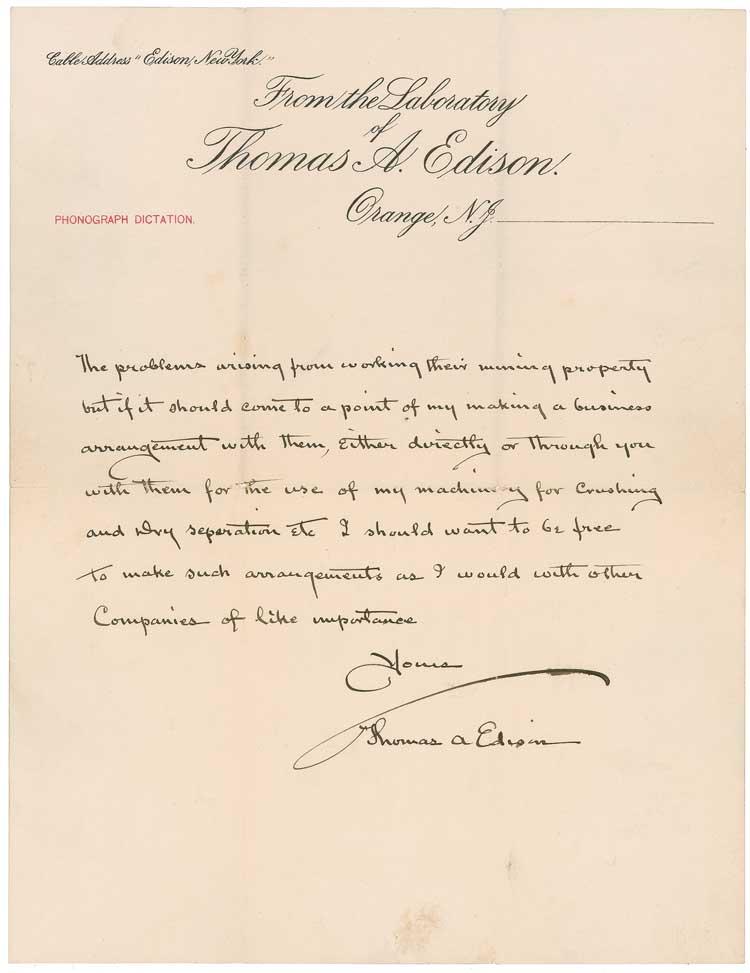 Cable Address "Edison, New York."
From the Laboratory
of
Thomas A. Edison.
Orange, N.J.
PHONOGRAPH DICTATION.
The problems arising from working their mining property
but if it should come to a point of my making a business
arrangement with them, either directly or through you
with them for the use of my machinery for crushing
and Dry seperation etc I should want to be free
to make such arrangements as I would with other
Companies of like importance
Yours
Thomas A Edison